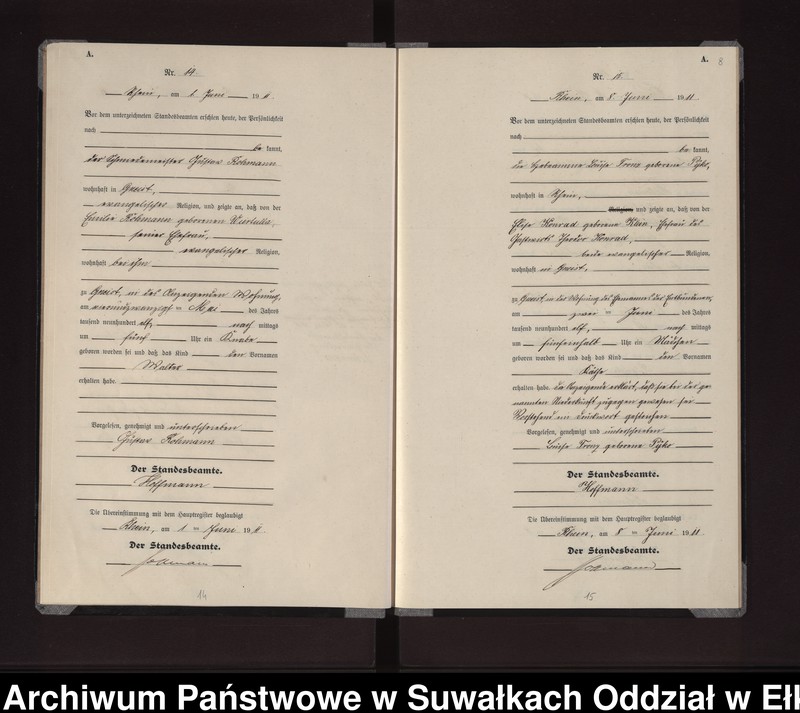 A.
Nr. 14.
Rhein, am 1. Juni 1911
Vor dem unterzeichneten Standesbeamten erschien heute, der Persönlichkeit
nach
be kannt,
der Schmiedemeister Gustav Rohmann
wohnhaft in
evangelischer Religion, und zeigte an, daß von der
Emilie Rohmann geborenen
seiner Ehefrau,
evangelischer Religion,
wohnhaft bei ihm
zu in des Anzeigenden Wohnung,
am ten Mai des Jahres
tausend neunhundert elf, nach mittags
um fünf Uhr ein Knabe
geboren worden sei und daß das Kind den Vornamen
Walter
erhalten habe.
Vorgelesen, genehmigt und unterschrieben
Gustav Rohmann
Der Standesbeamte.
Hoffmann
Die Übereinstimmung mit dem Hauptregister beglaubigt
Rhein, am 1 ten Juni 1911.
Der Standesbeamte.
Hoffmann
14
A. 8
Nr. 15.
Rhein, am 8. Juni 1911.
Vor dem unterzeichneten Standesbeamten erschien heute, der Persönlichkeit
nach
be kannt,
die Hebeamme Louise geborene
wohnhaft in Rhein,
Religion und zeigte an, daß von der
Konrad geborene Klein, Ehefrau des
Gastwirts Konrad,
beide evangelischer Religion,
wohnhaft in
zu in der Wohnung des Ehemannes der Entbundenen,
am zwei ten Juni des Jahres
tausend neunhundert elf, nach mittags
um fünfeinhalb Uhr ein Mädchen
geboren worden sei und daß das Kind den Vornamen
Käthe
erhalten habe. Die Anzeigende erklärt, daß sie bei der ge
nannten Niederkunft zugegen gewesen sei
Vorstehend ein Druckwort gestrichen
Vorgelesen, genehmigt und unterschrieben
Louise geborene
Der Standesbeamte.
Hoffmann
Die Übereinstimmung mit dem Hauptregister beglaubigt
Rhein, am 8 ten Juni 1911
Der Standesbeamte.
Hoffmann
15
Archiwum Państwowe w Suwałkach Oddział w Ełk